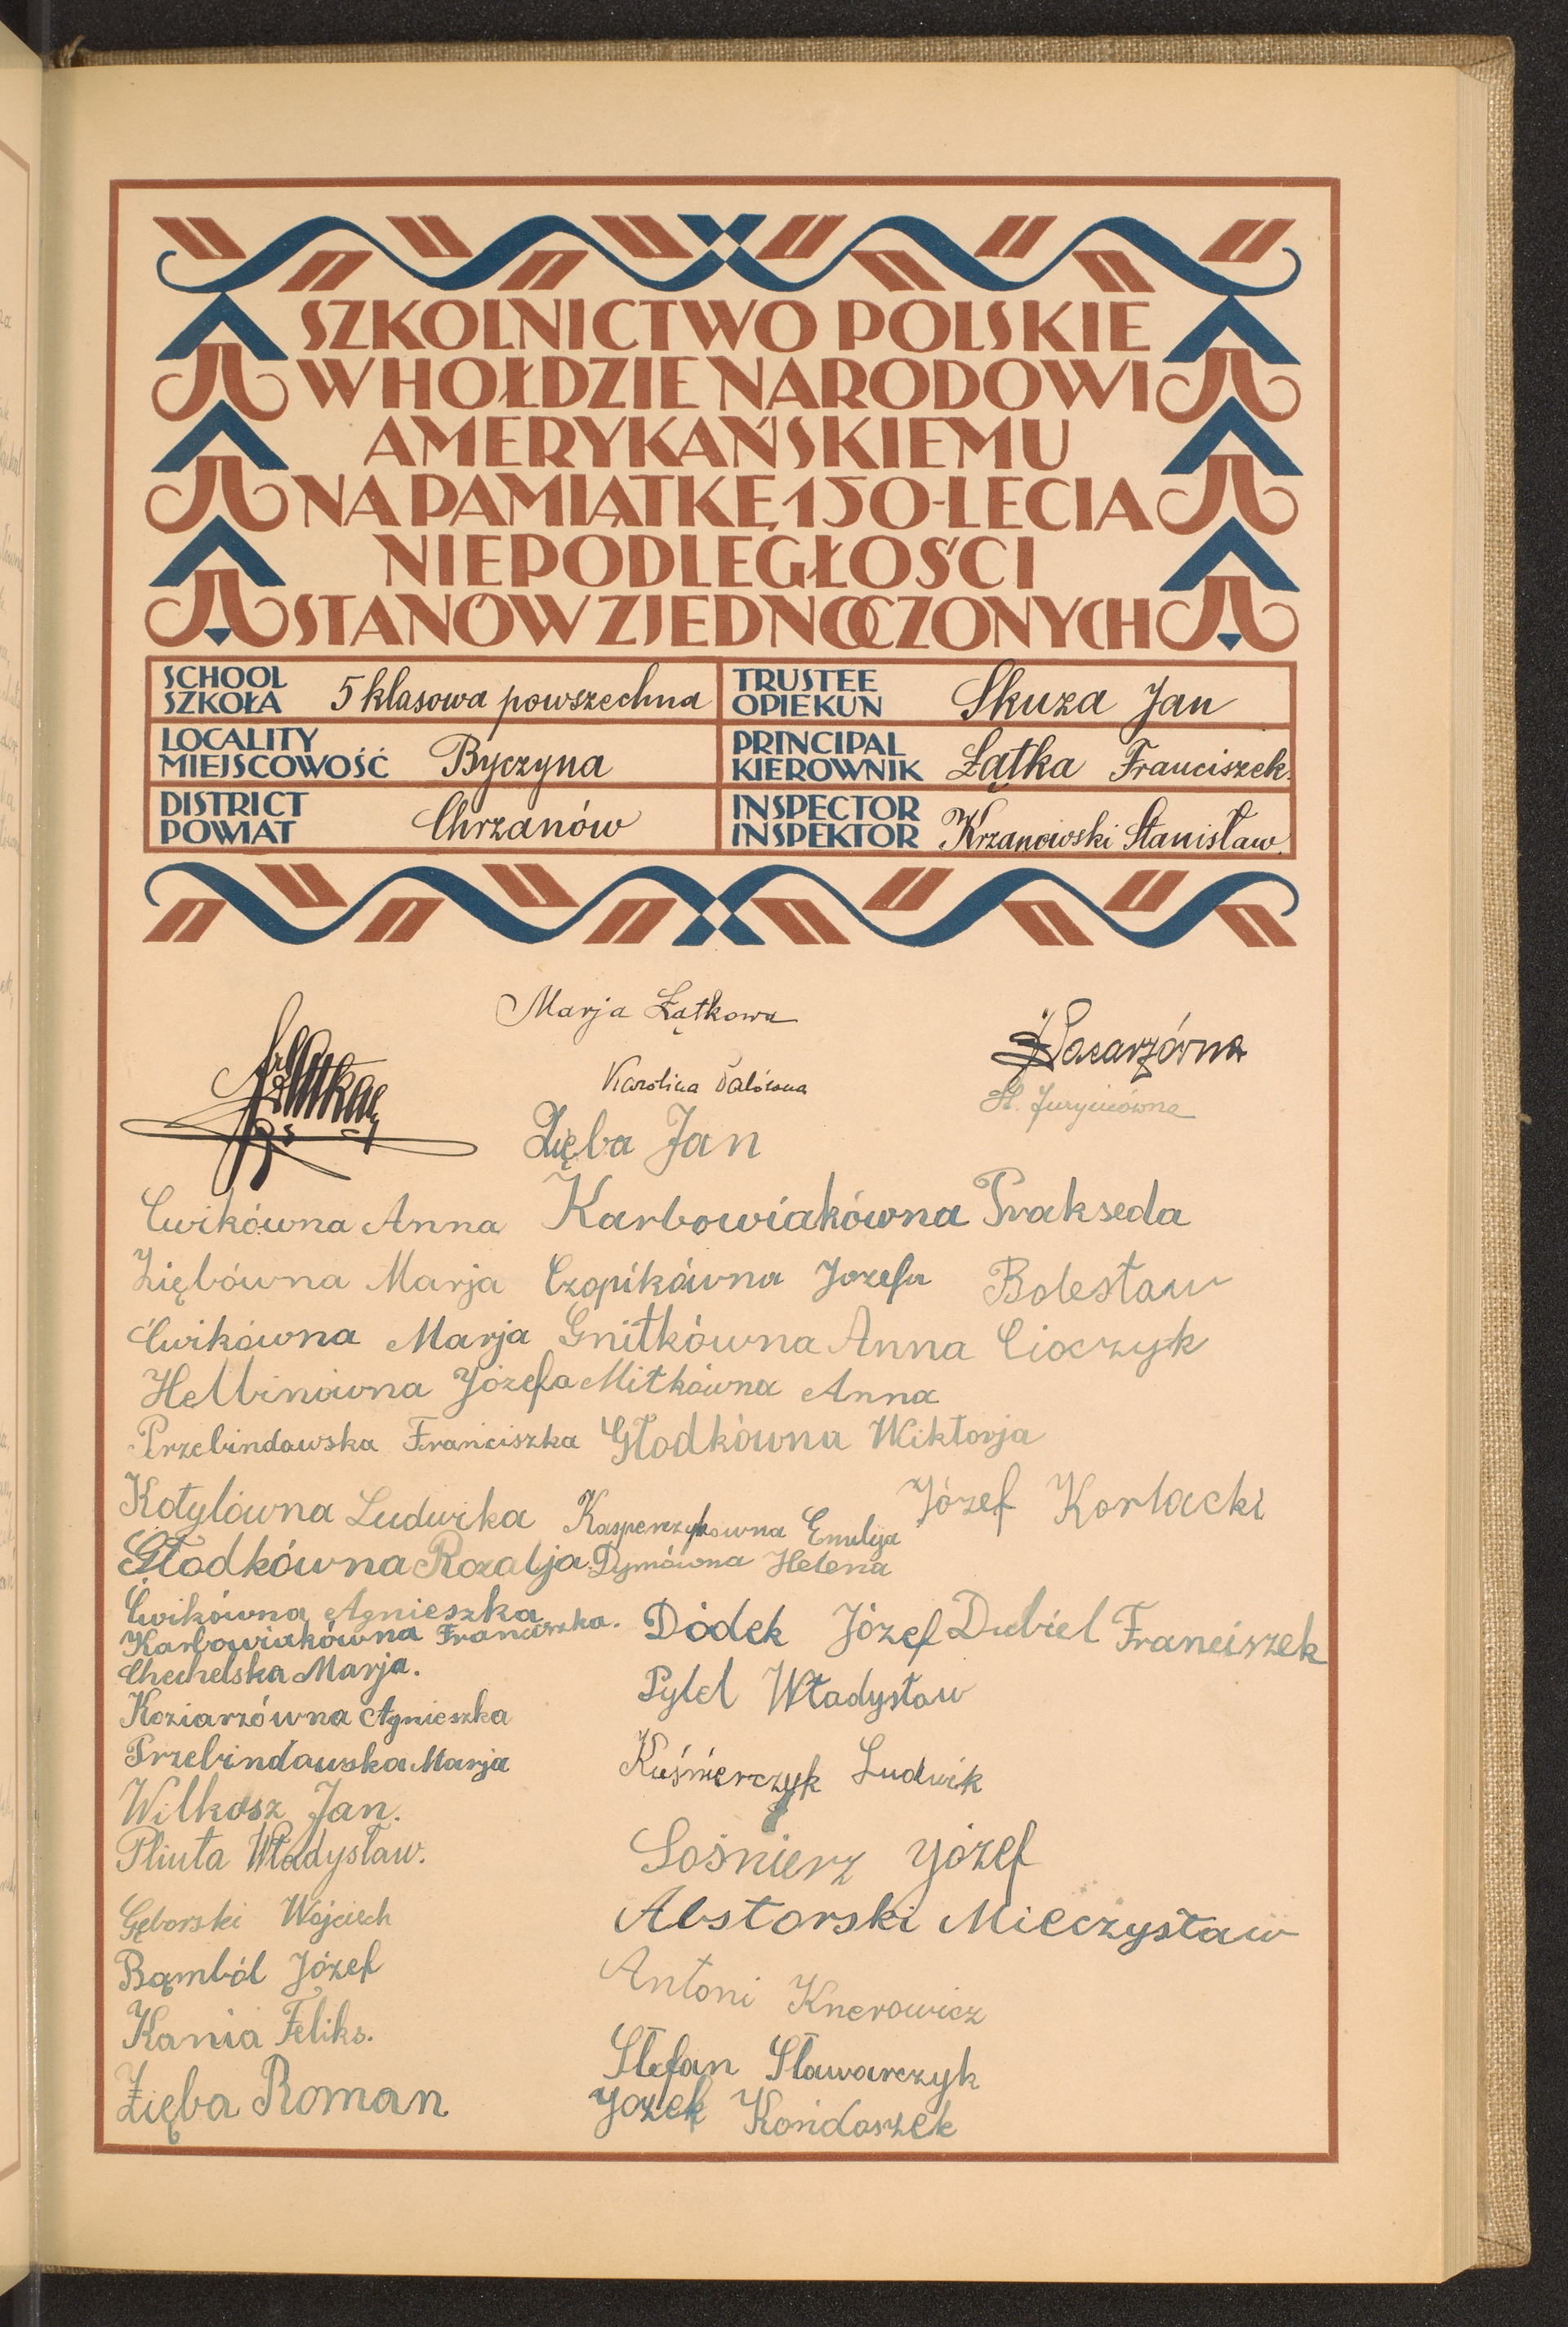 SZKOLNICTWO POLSKIE
W HOŁDZIE NARODOWI
AMERYKAŃSKIEMU
NA PAMIĄTKĘ 150-LECIA
NIEPODLEGŁOŚCI
STANÓW ZJEDNOCZONYCH
SCHOOL
SZKOŁA 5 klasowa powszechna
TRUSTEE
OPIEKUN Skuza Jan
LOCALITY
MIEJSCOWOŚĆ Byczyna
PRINCIPAL
KIEROWNIK Łątka Franciszek.
DISTRICT
POWIAT Chrzanów
INSPECTOR
INSPEKTOR Krzanowski Stanisław.
Marja Łątkowa
Karolina
St.
Zięba Jan
Ćwikówna Anna Karbowiakówna Prakseda
Ziębówna Marja Czopikówna Jozefa Bolesław
Ćwikówna Marja Gnitkówna Anna Cioczyk
Helbinówna Józefa Mitkówna Anna
Przebindowska Franciszka Głodkówna Wiktorja
Kotylówna Ludwika Kasperczykówna Emilja Józef Korbacki
Głodkówna Rozalja. Dymówna Helena
Ćwikówna Agnieszka
Karbowiakówna Franciszka. Dódek Józef Dubiel Franciszek
Chechelska Marja.
Koziarzówna Agnieszka
Pytel Władysław
Przebindowska Marja
Kuśnierczyk Ludwik
Wilkosz Jan.
Pliuta Władysław.
Sośnierz Józef
Gęborski Wojciech
Abstorski Mieczysław
Bąmból Józef
Antoni Knerowicz
Kania Feliks.
Stefan Sławarczyk
Zięba Roman
Józek Kondoszek